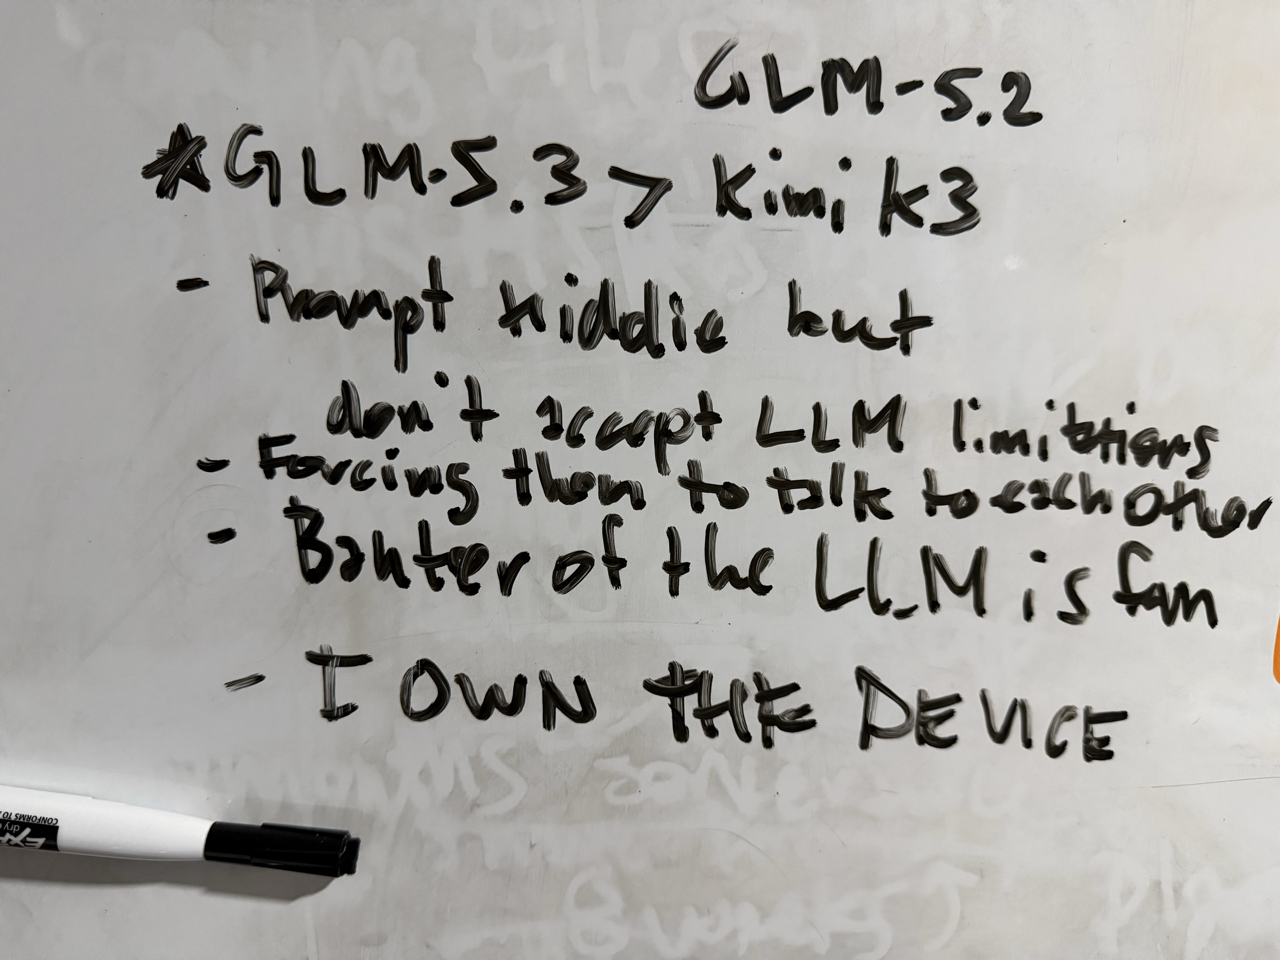 GLM-5.2
*GLM-5.3 > Kimi K3
- Prompt kiddie but
don't accept LLM limitations
- Forcing them to talk to each other
- Banter of the LLM is fun
- I OWN THE DEVICE
CONFORMS TO
dry
EX